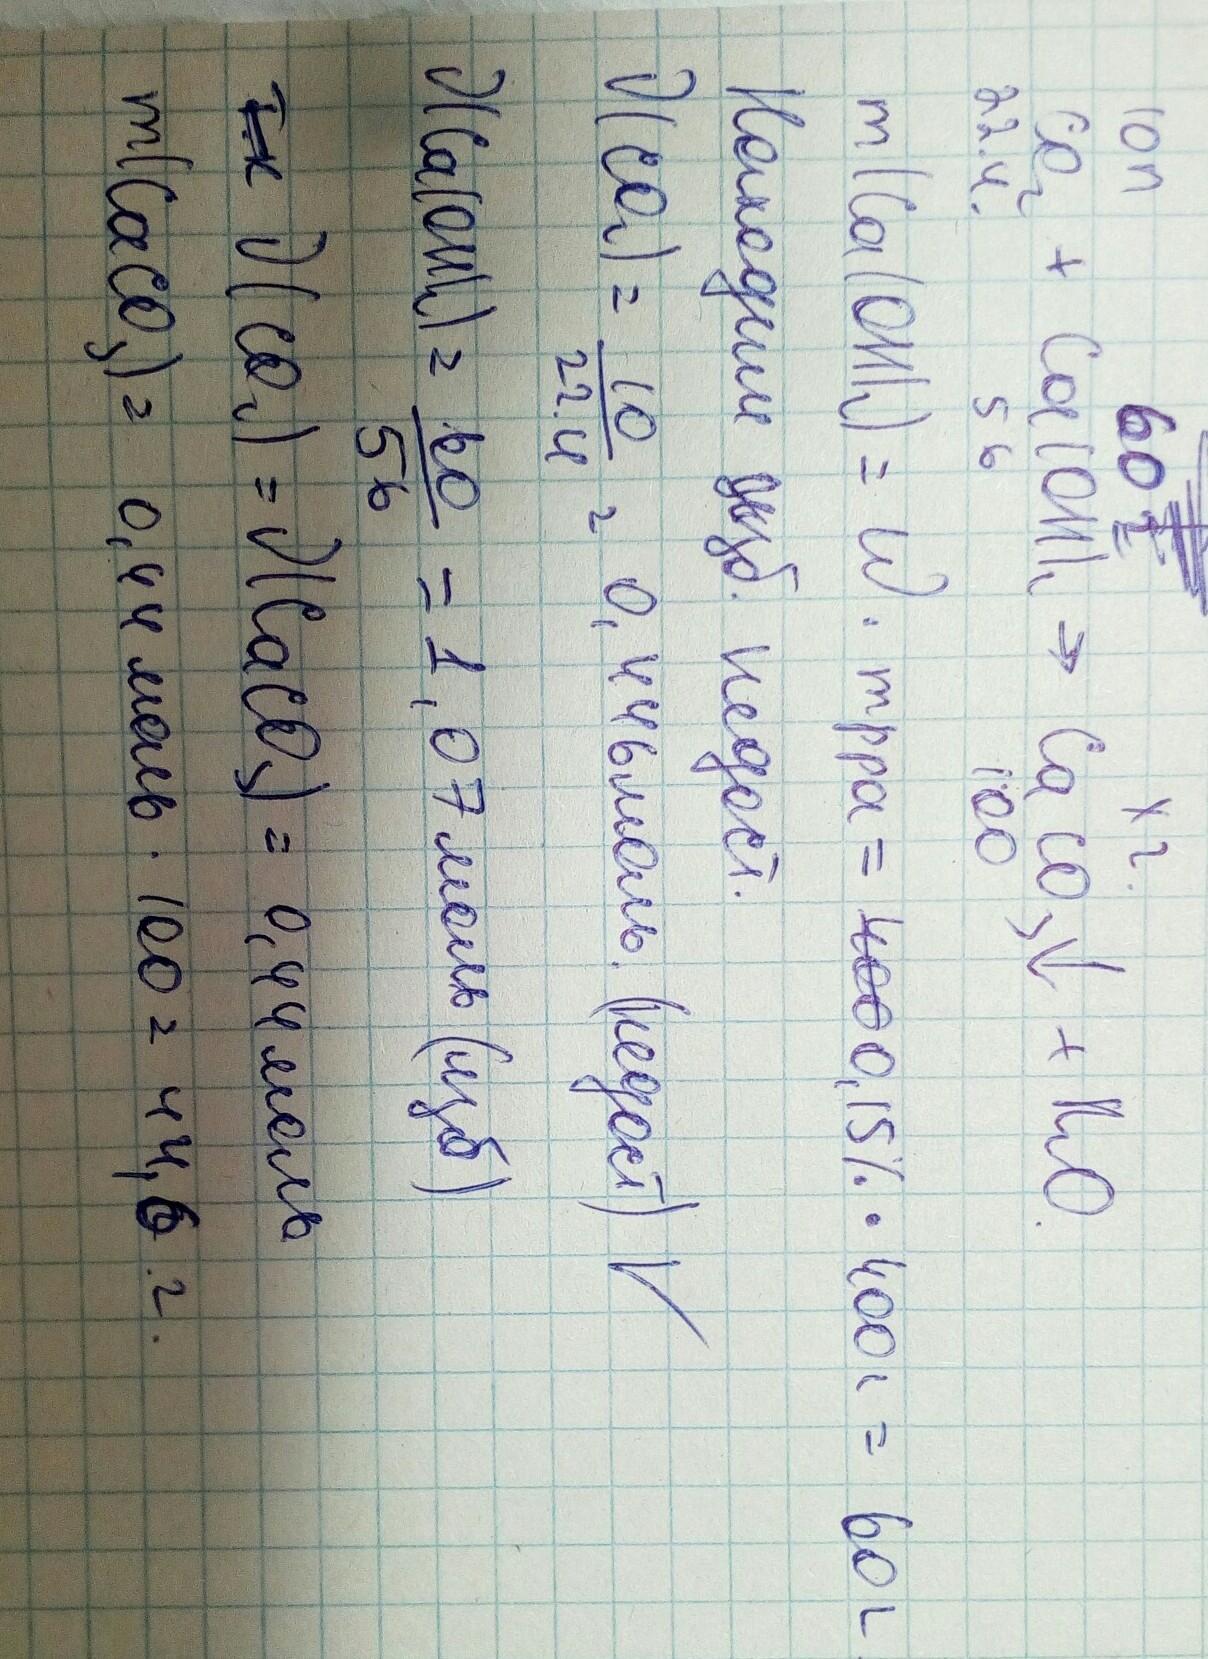 10л 60г хг.
CO₂ + Ca(OH)₂ → CaCO₃↓ + H₂O.
22.4. 56 100
m(Ca(OH)₂) = W · mрра = 0,15% · 400г = 60г
Находим изб. недост.
ν(CO₂) = 10/22.4 = 0,446моль. (недост) √
ν(Ca(OH)₂) = 60/56 = 1,07моль (изб)
т.к ν(CO₂) = ν(CaCO₃) = 0,44моль
m(CaCO₃) = 0,44моль · 100 = 44,6 г.